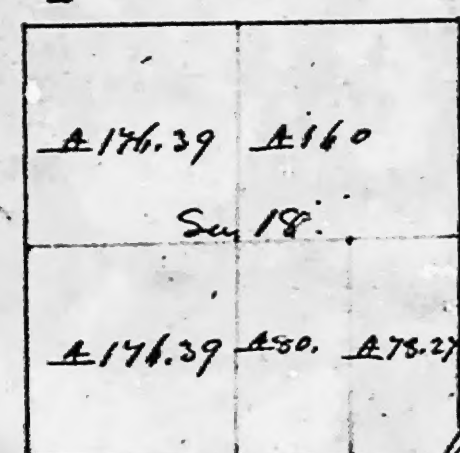 A 176.39 A 160
Sec 18.
A 176.39 A 80. A 78.27